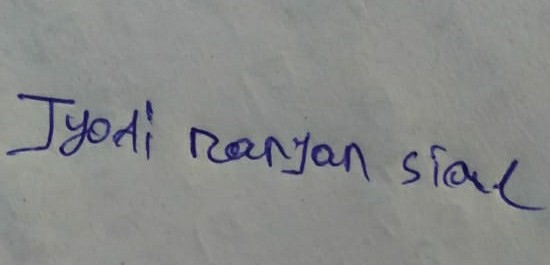 Jyoti ranjan sial